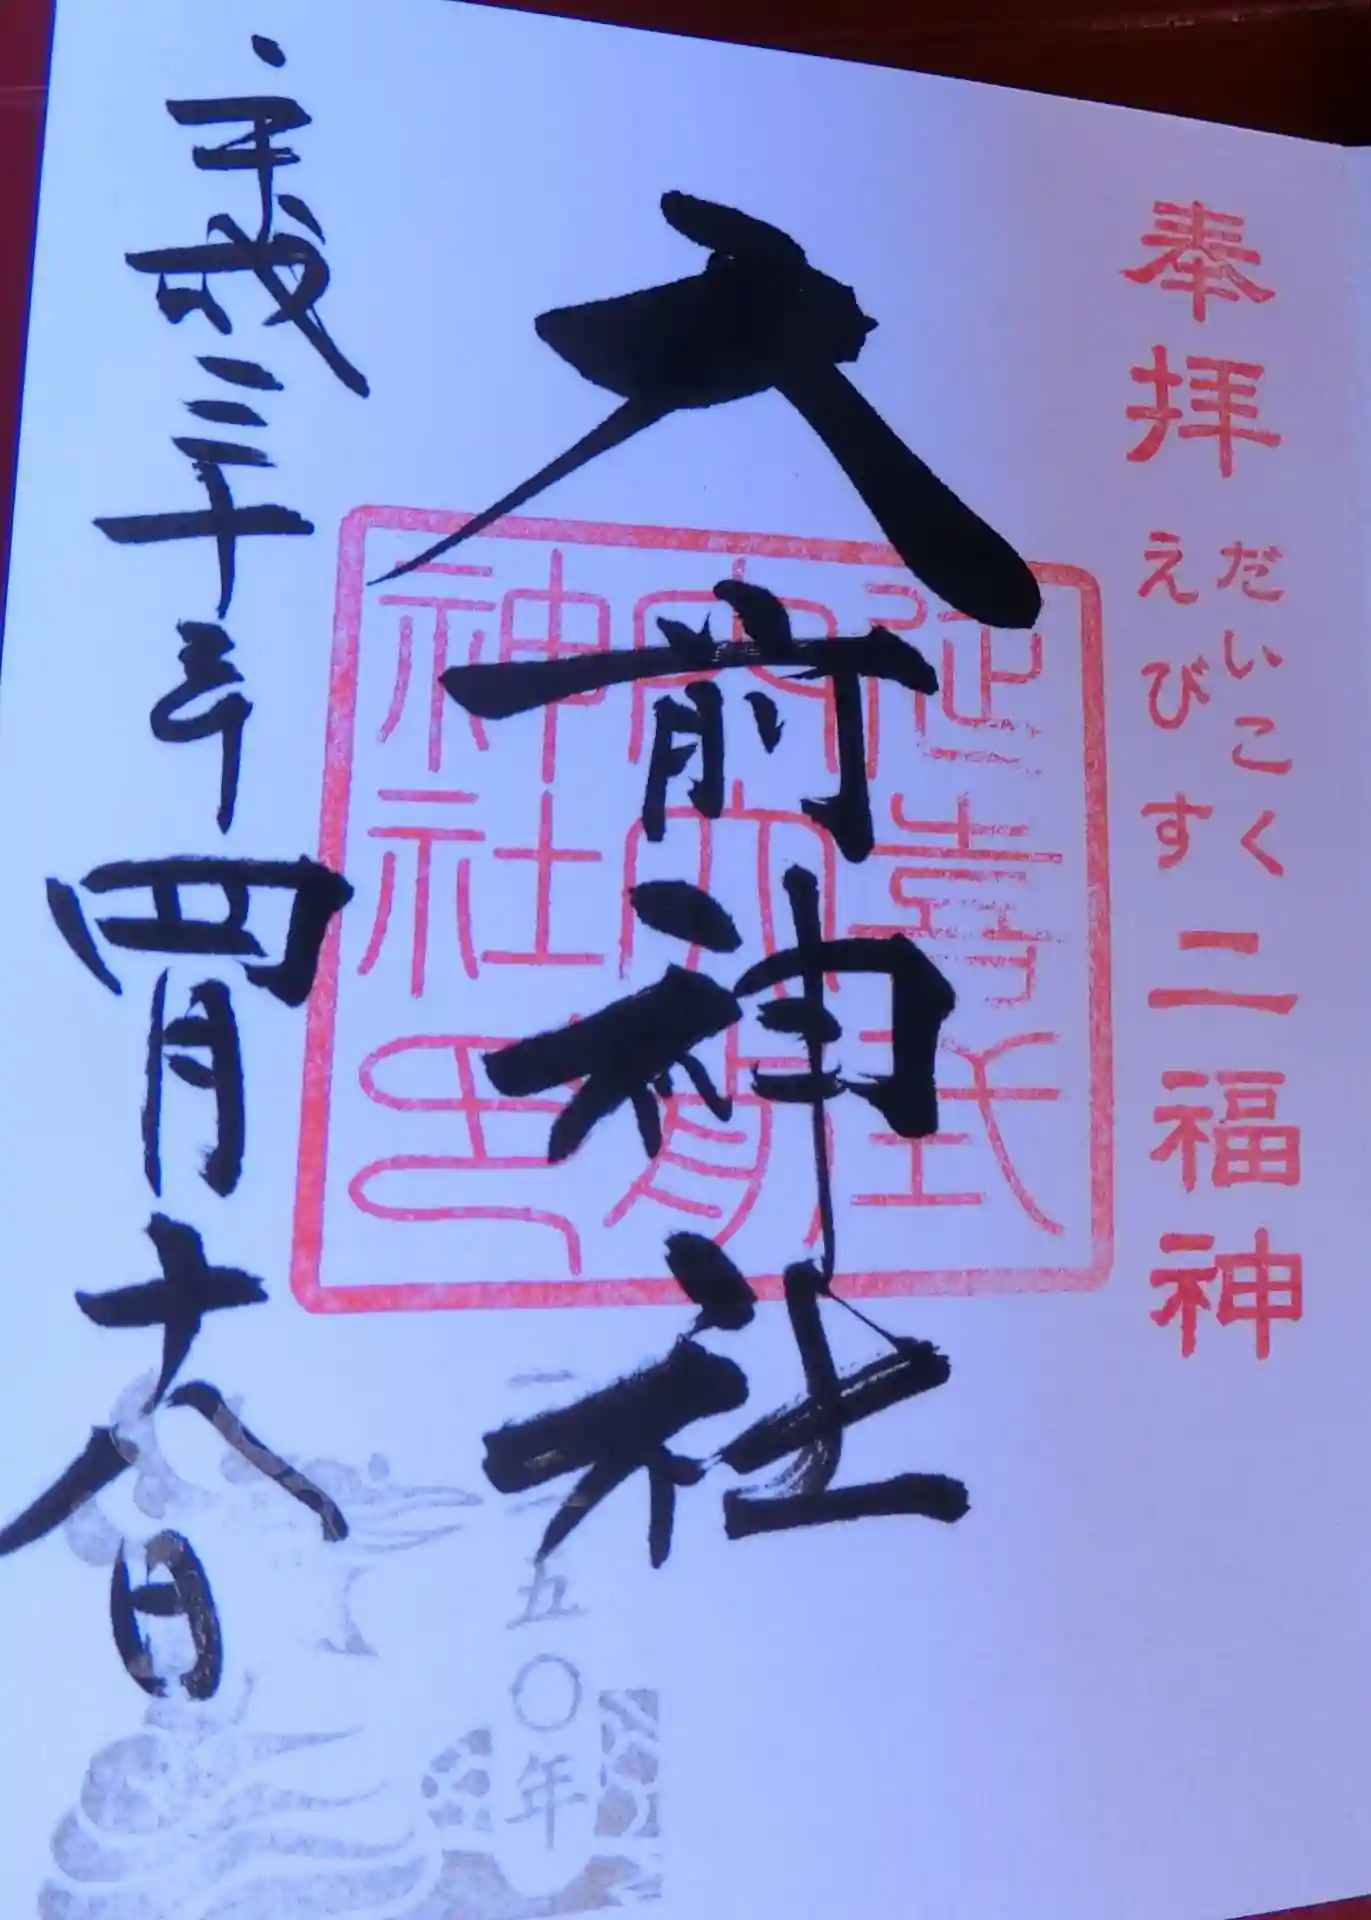 奉拝
だいこく
えびす
二福神
大前神社
延喜式
内大前
神社印
平成三十年四月十八日
一二五〇年